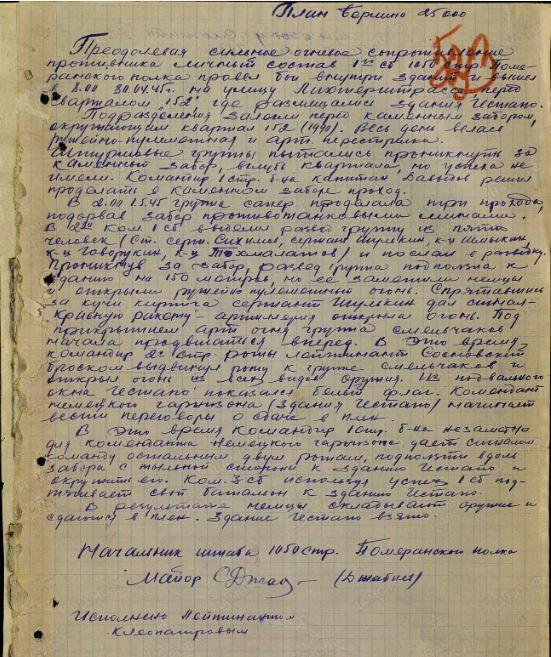 План Берлина 25000
Преодолевая сильное огневое сопротивление
противника личный состав 1го сб 1050 стр Поме-
ранского полка провёл бои внутри зданий и вышел
в 8.00 30.04.45г. на улицу Лихтерштрассе перед
кварталом "152", где размещались здания Гестапо.
Подразделения залегли перед каменным забором,
окружающим квартал 152 Весь день велась
ружейно-пулеметная и арт. перестрелка.
Штурмовые группы пытались проникнуть за
каменный забор, вглубь квартала, но успеха не
имели. Командир 1 стр. б-на капитан Давыдов решил
проделать в каменном заборе проход.
В 2.00 1.5.45 группа сапер проделала три прохода,
подорвав забор противотанковыми минами.
В 2.30 Ком 1 сб. выделил развед группу из пяти
человек (Ст. серж. сержант Шумкин, к-ц
к-ц Говорухин, к-ц и послал в разведку.
Проникнув за забор, развед группа подползла к
зданию на 150 метров, но её заметили немцы
и открыли ружейно пулеметный огонь. Спрятавшись
за кучи кирпича сержант Шумкин дал сигнал -
красную ракету - артиллерия открыла огонь. Под
прикрытием арт огня группа смельчаков
начала продвигаться вперед. В это время,
командир 2й стр. роты лейтенант Сосновский
броском выдвинул роту к группе смельчаков и
открыл огонь из всех видов оружия. Из подвального
окна Гестапо показался белый флаг. Комендант
немецкого гарнизона (здания Гестапо) начинает
вести переговоры о сдаче в плен.
В это время командир 1 стр. б-на незаметно
для коменданта немецкого гарнизона, дает сигналом
команду остальным двум ротам, подползти вдоль
забора с тыльной стороны к зданию Гестапо и
окружить его. Ком. 3 сб используя успех 1 сб под-
тягивает свой батальон к зданию Гестапо.
В результате немцы складывают оружие и
сдаются в плен. Здание Гестапо взято.
Начальник штаба 1050 стр. Померанского полка
Майор
Исполнено Лейтенантом
Клеопатровым